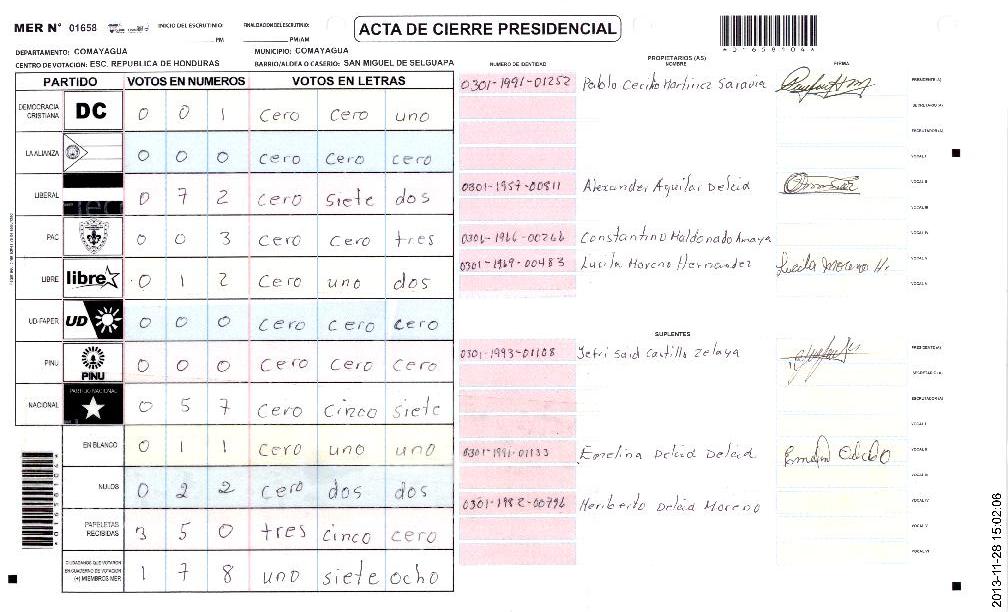 MER N° 01658 INICIO DEL ESCRUTINIO: PM FINALIZACION DEL ESCRUTINIO: PM/AM ACTA DE CIERRE PRESIDENCIAL
DEPARTAMENTO: COMAYAGUA MUNICIPIO: COMAYAGUA
CENTRO DE VOTACION: ESC. REPUBLICA DE HONDURAS BARRIO/ALDEA O CASERIO: SAN MIGUEL DE SELGUAPA
PARTIDO VOTOS EN NUMEROS VOTOS EN LETRAS
DEMOCRACIA CRISTIANA DC 0 0 1 cero cero uno
LA ALIANZA 0 0 0 cero cero cero
LIBERAL 0 7 2 cero siete dos
PAC 0 0 3 cero cero tres
LIBRE libre 0 1 2 cero uno dos
UD-FAPER UD 0 0 0 cero cero cero
PINU PINU 0 0 0 cero cero cero
NACIONAL PARTIDO NACIONAL 0 5 7 cero cinco siete
EN BLANCO 0 1 1 cero uno uno
NULOS 0 2 2 cero dos dos
PAPELETAS RECIBIDAS 3 5 0 tres cinco cero
CIUDADANOS QUE VOTARON EN CUADERNO DE VOTACION (+) MIEMBROS MER 1 7 8 uno siete ocho
NUMERO DE IDENTIDAD PROPIETARIOS (AS) NOMBRE FIRMA
0301-1991-01252 Pablo Martinez Saravia PRESIDENTE(A)
SECRETARIO(A)
ESCRUTADOR(A)
VOCAL I
0301-1957-00811 Alexander Aguilar Delcid VOCAL II
VOCAL III
0301-1966-00266 Constantino Maldonado Amaya VOCAL IV
0301-1969-00483 Lucila Moreno Hernandez Lucila Moreno H. VOCAL V
SUPLENTES
0301-1993-01108 Jefri Said Castillo Zelaya PRESIDENTE(A)
SECRETARIO(A)
ESCRUTADOR(A)
VOCAL I
0301-1991-01133 Emelina Delcid Delcid VOCAL II
VOCAL III
0301-1982-00796 Heriberto Delcid Moreno VOCAL IV
VOCAL V
VOCAL VI
2013-11-28 15:02:06